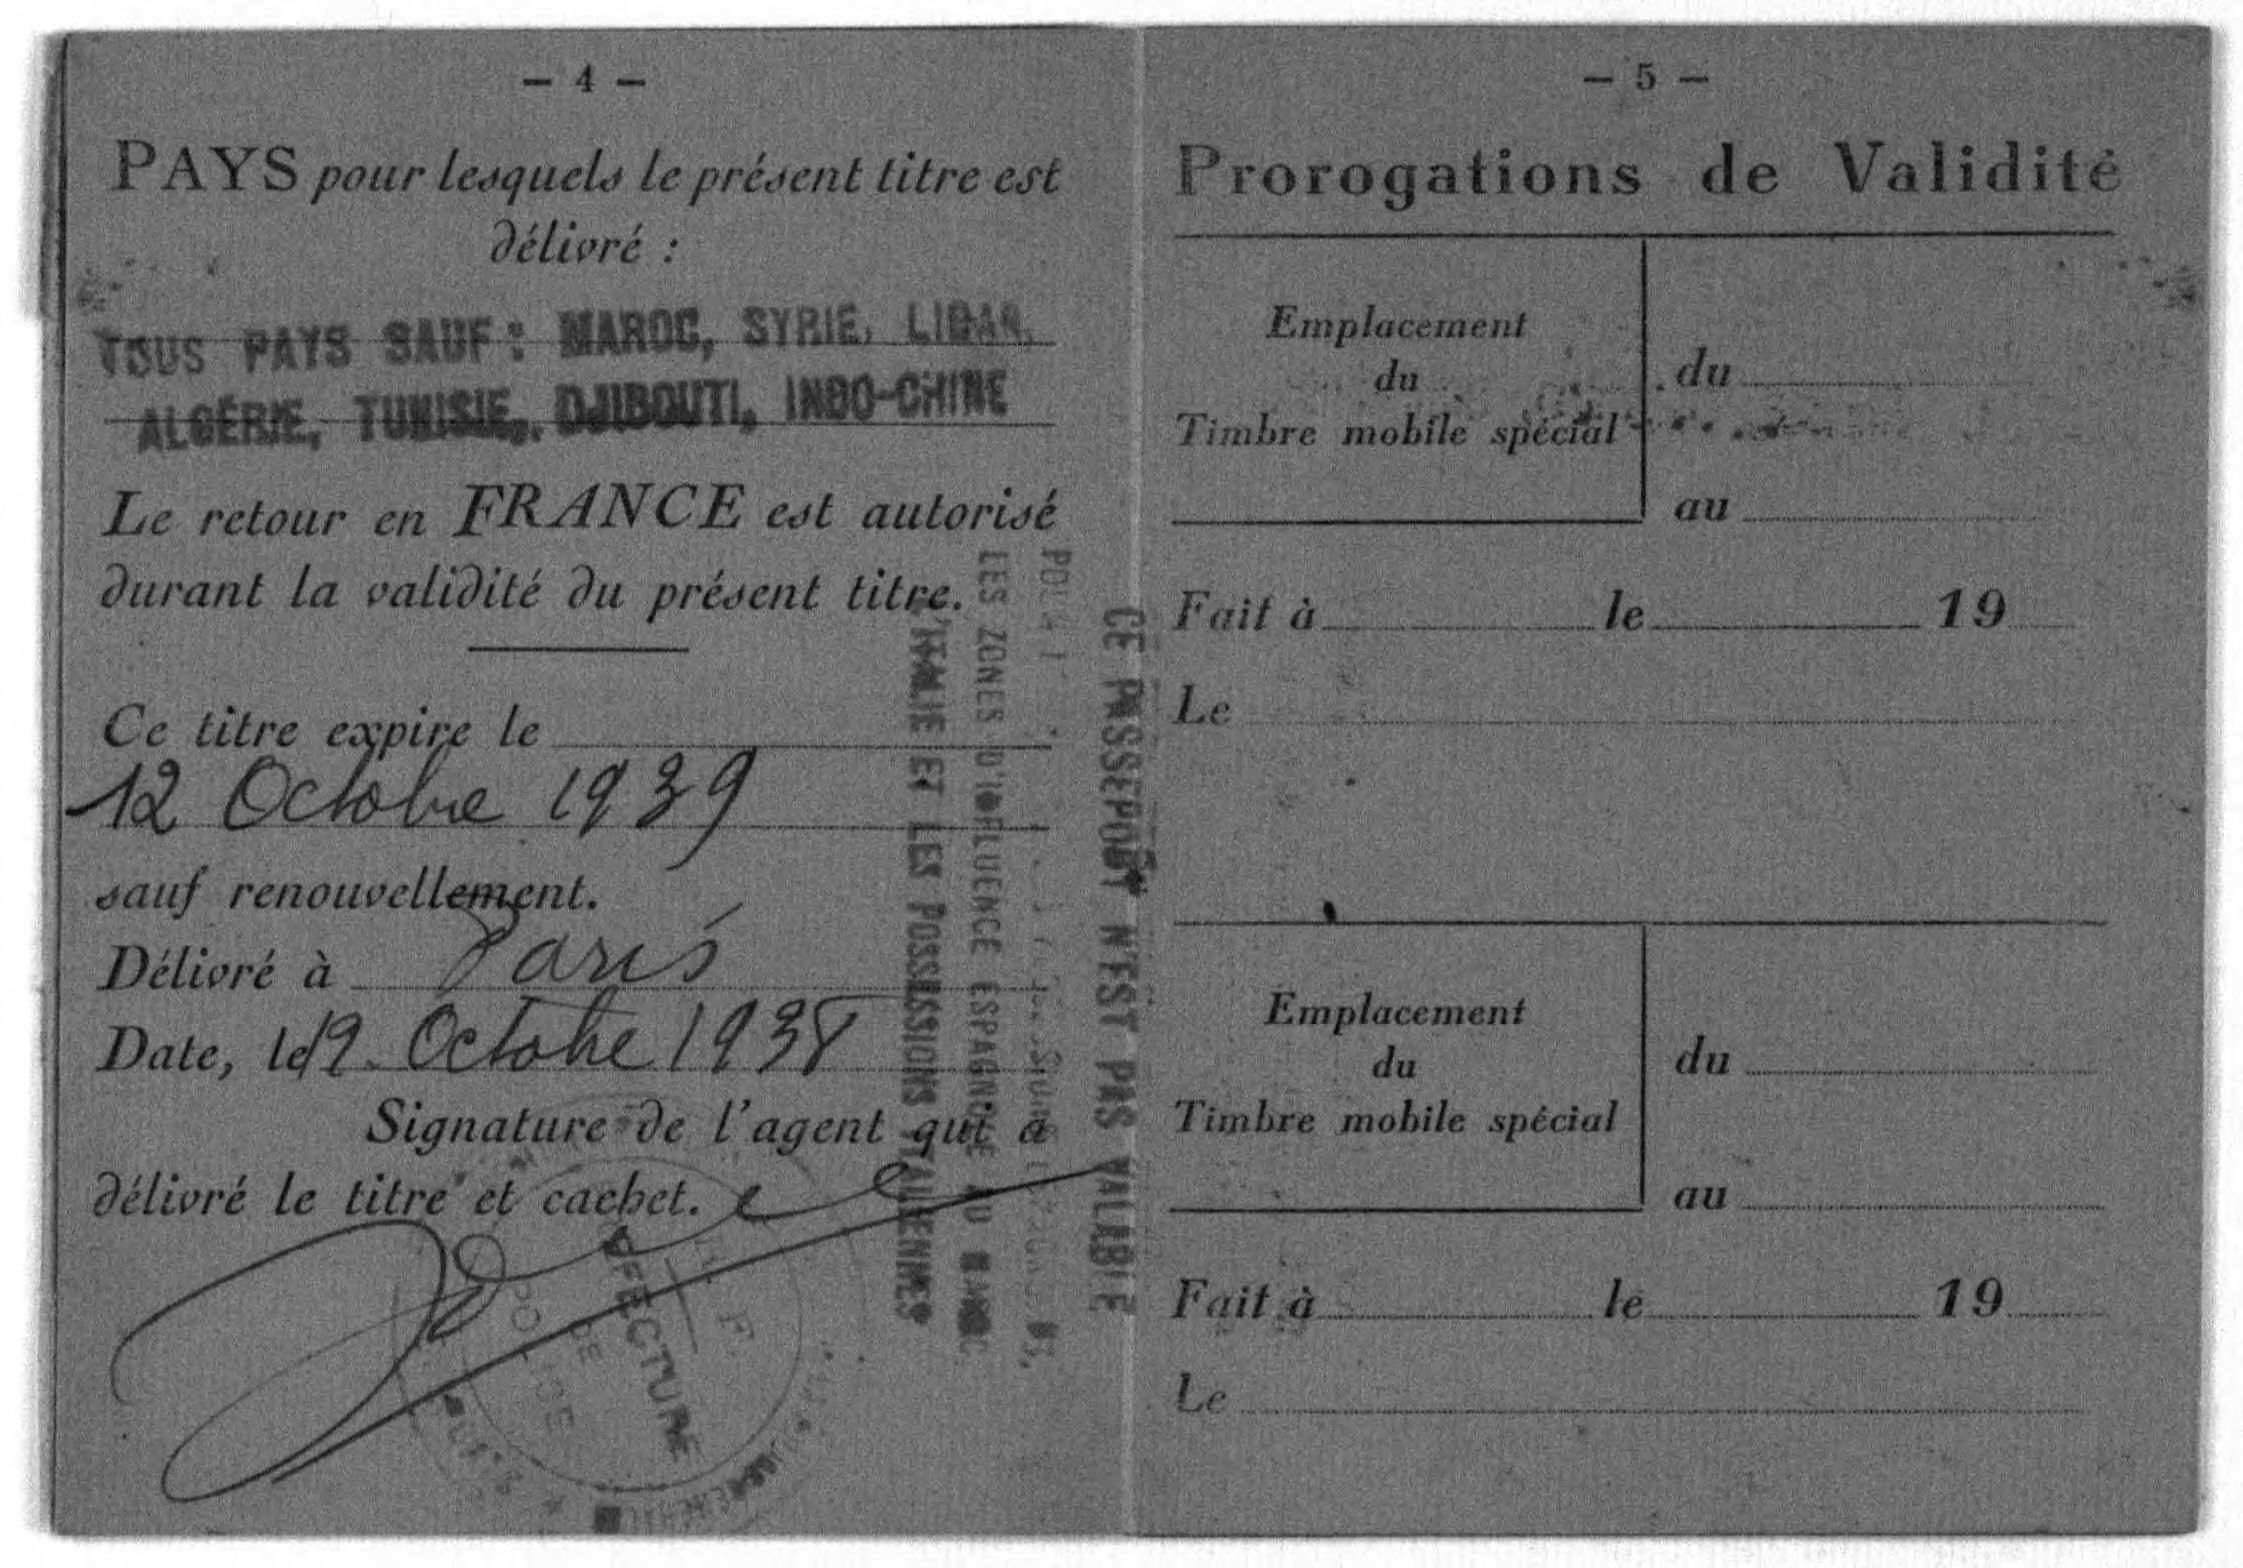 — 4 —
PAYS pour lesquels le présent titre est
délivré :
TOUS PAYS SAUF : MAROC, SYRIE, LIBAN,
ALGÉRIE, TUNISIE, DJIBOUTI, INDO-CHINE
Le retour en FRANCE est autorisé
durant la validité du présent titre.
Ce titre expire le
12 Octobre 1939
sauf renouvellement.
Délivré à Paris
Date, le 12 Octobre 1938
Signature de l'agent qui a
délivré le titre et cachet.
PREFECTURE
DE
POLICE
CE PASSEPORT N'EST PAS VALABLE
LES ZONES D'INFLUENCE ESPAGNOLE AU MAROC,
L'ITALIE ET LES POSSESSIONS ITALIENNES
— 5 —
Prorogations de Validité
Emplacement
du
Timbre mobile spécial
du
au
Fait à le 19
Le
Emplacement
du
Timbre mobile spécial
du
au
Fait à le 19
Le